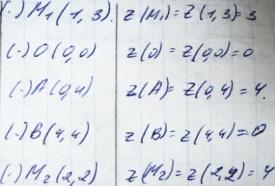 (·) M₁(1,3). z(M₁) = z(1,3) = 3
(·) O(0,0) z(0) = z(0,0) = 0
(·) A(0,4) z(A) = z(0,4) = 4.
(·) B(4,4) z(B) = z(4,4) = 0
(·) M₂(2,2) z(M₂) = z(2,2) = 4